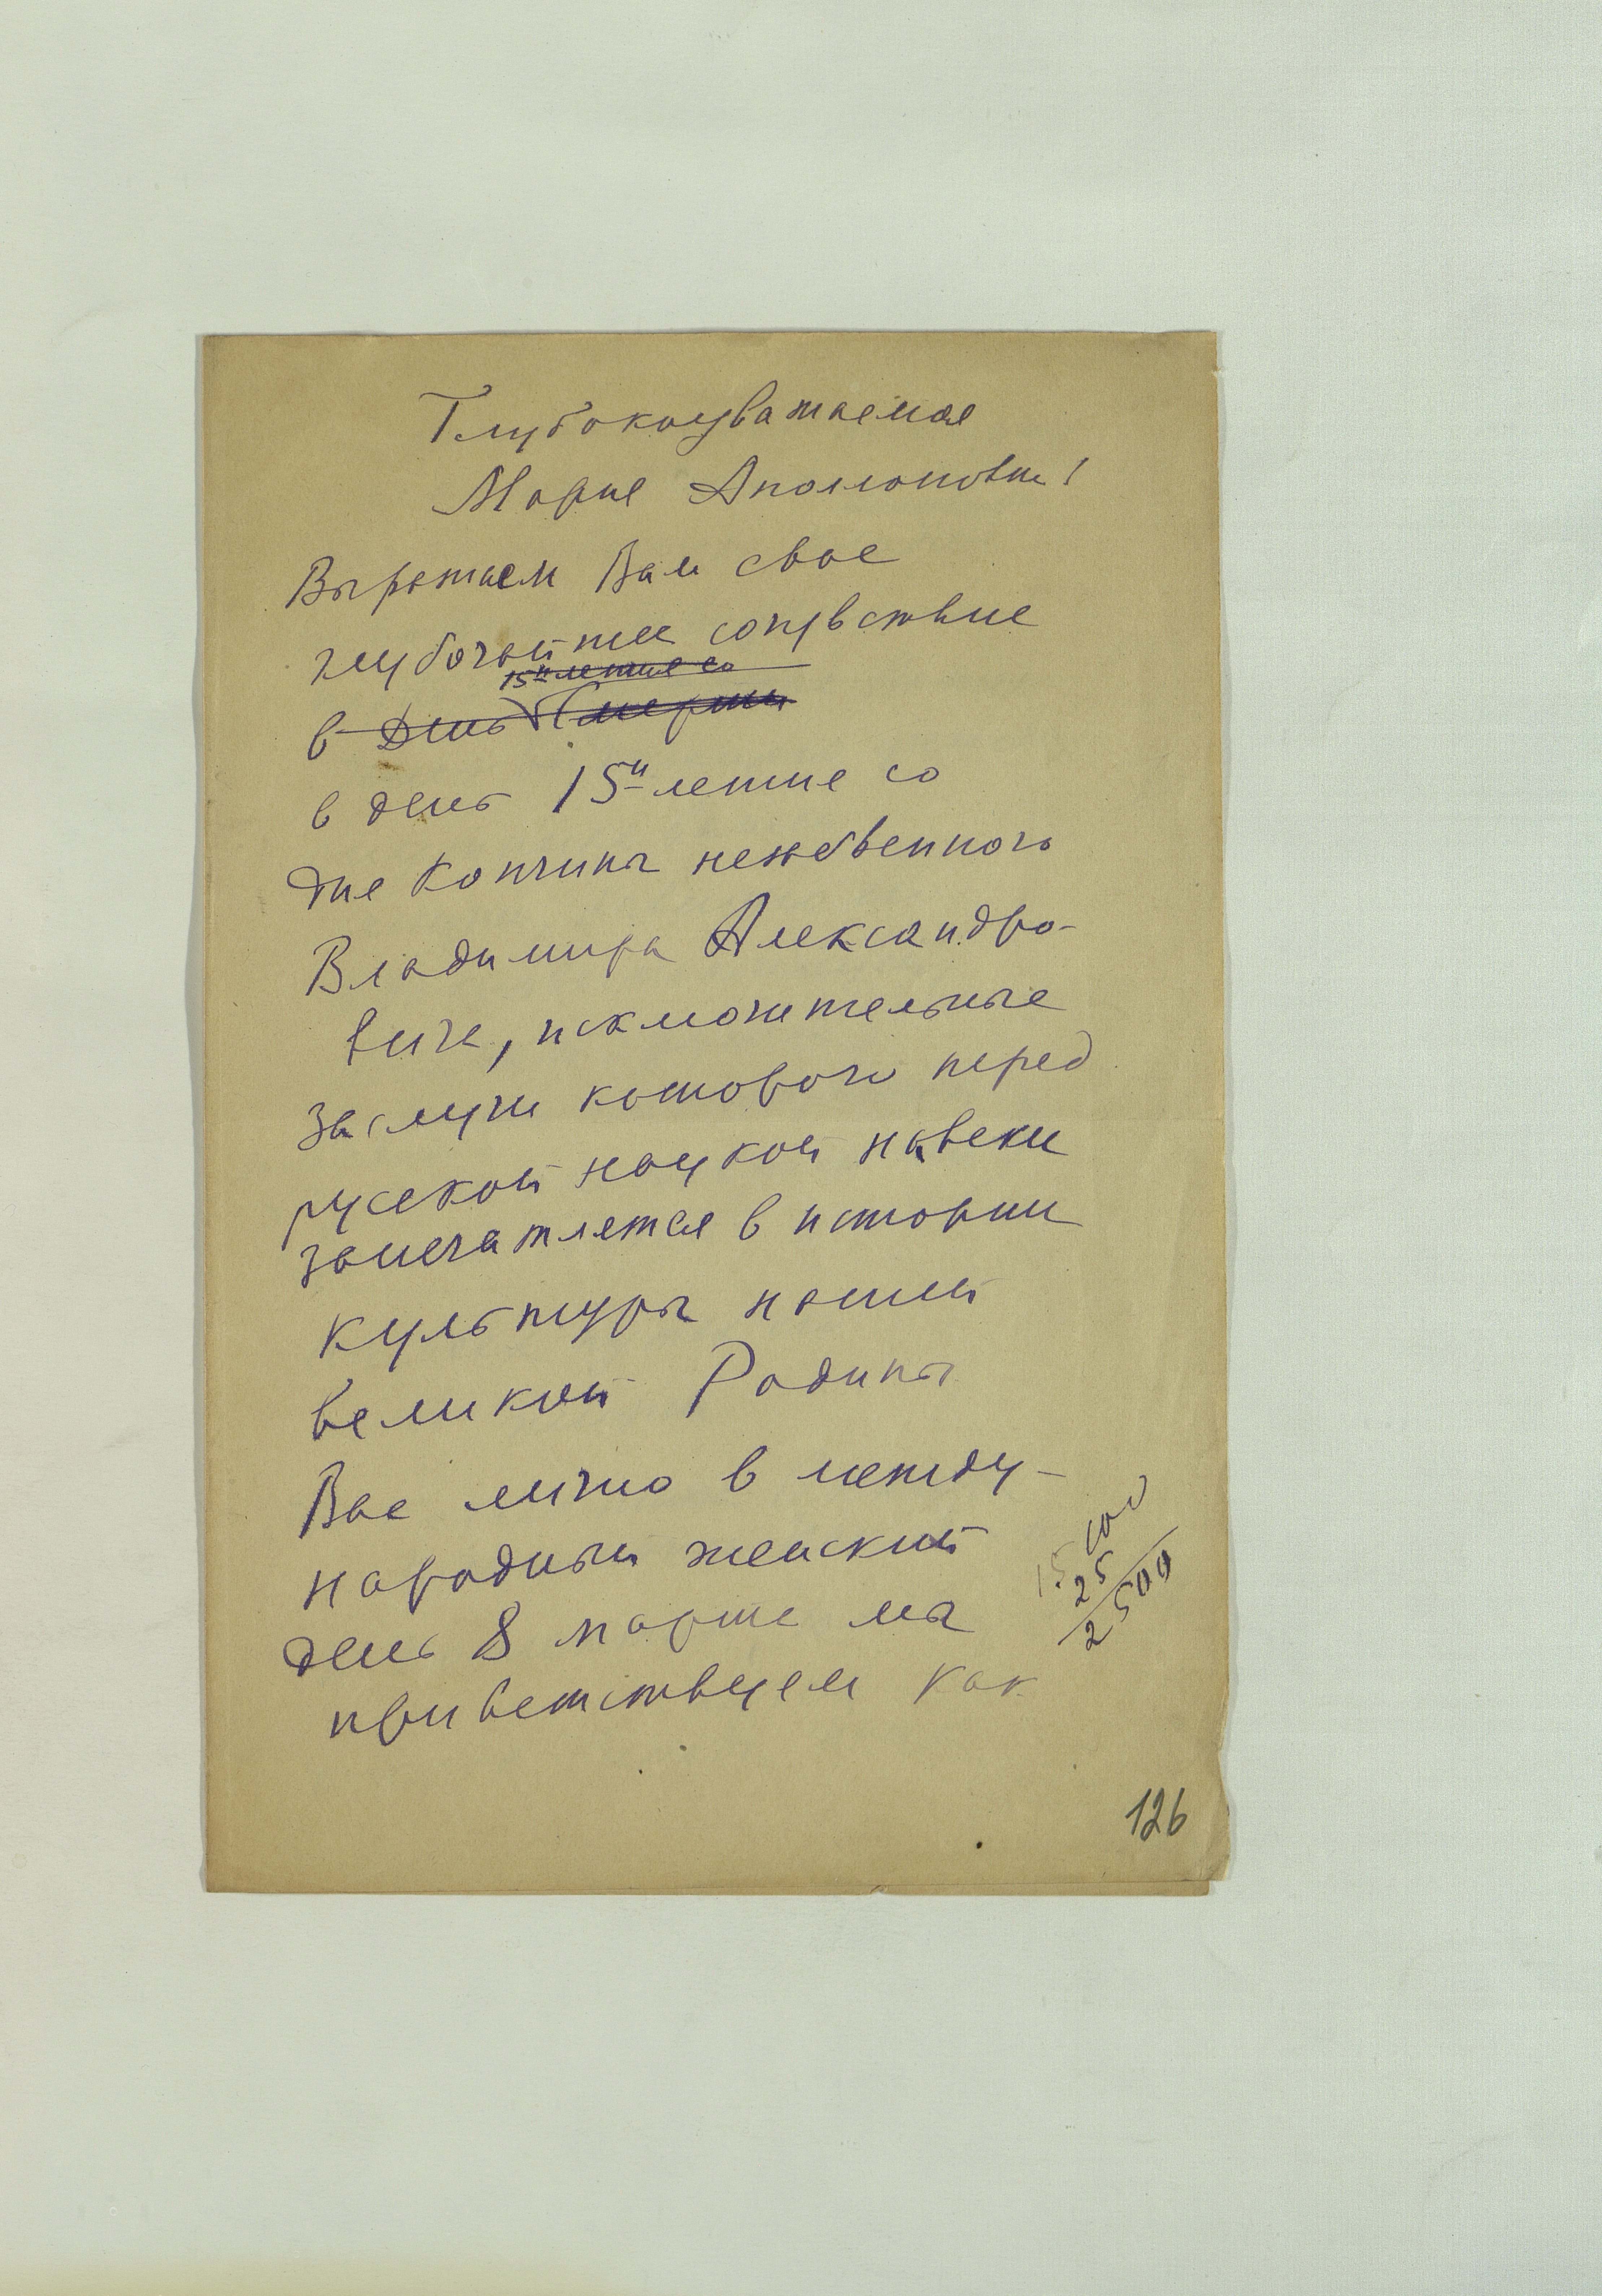 Глубокоуважаемая
Мария Аполоновна!
Выражаем Вам свое
глубочайшее сочувствие
15и летие со
в День Смерти
в день 15и летие со
дня Кончины незабвенного
Владимира Александро-
вича, исключительные
заслуги которого перед
русской наукой навеки
запечатлятся в истории
культуры нашей
великой Родины
Вас лично в между-
народный женский
день 8 марта мы
приветствуем как
15
25
2500
126